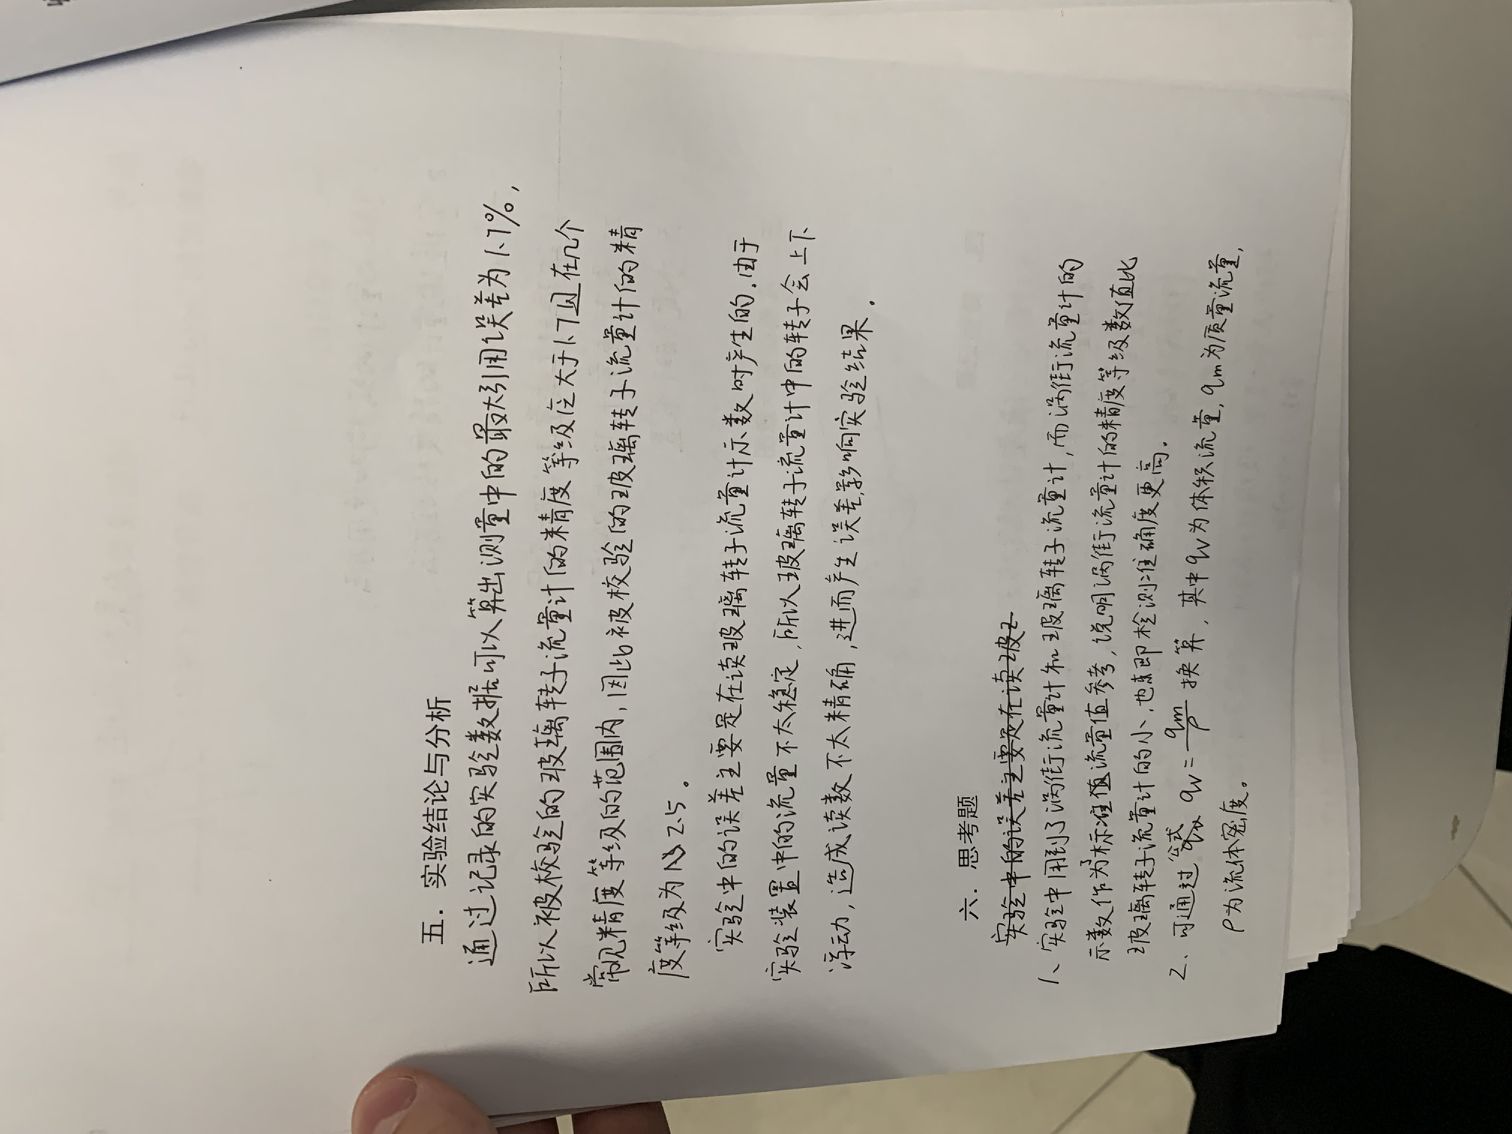 五. 实验结论与分析
通过记录的实验数据可以算出测量中的最大引用误差为1.7%,
所以被校验的玻璃转子流量计的精度等级应大于1.7且在几个
常见精度等级的范围内,因此被校验的玻璃转子流量计的精
度等级为 2.5。
实验中的误差主要是在读玻璃转子流量计示数时产生的.由于
实验装置中的流量不太稳定,所以玻璃转子流量计中的转子会上下
浮动,造成读数不太精确,进而产生误差,影响实验结果.
六. 思考题
实验中的误差主要是在读玻王
1、实验中用到了涡街流量计和玻璃转子流量计,而涡街流量计的
示数作为了标准值流量值参考,说明涡街流量计的精度等级数值比
玻璃转子流量计的小,也即检测准确度更高.
2、可通过公式 qv = qm/ρ 换算,其中qv为体积流量,qm为质量流量,
ρ为流体密度。